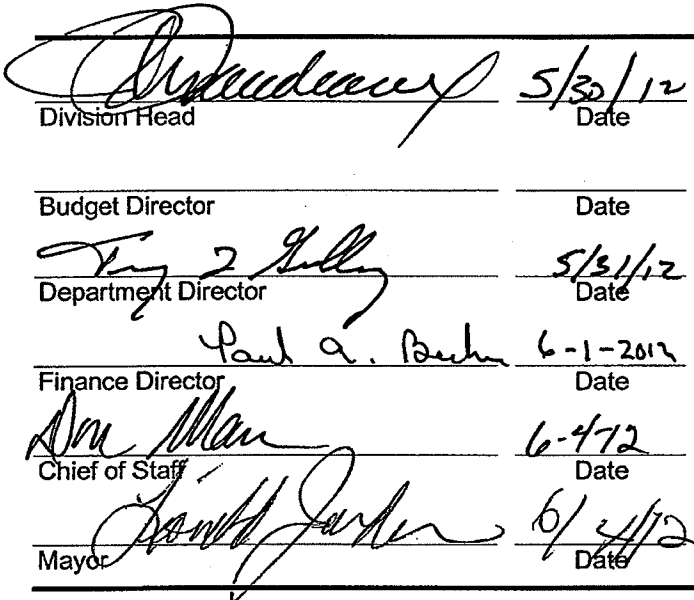 5/30/12
Division Head Date
Budget Director Date
5/31/12
Department Director Date
Paul A. 6-1-2012
Finance Director Date
Don 6-4-12
Chief of Staff Date
6/4/12
Mayor Date